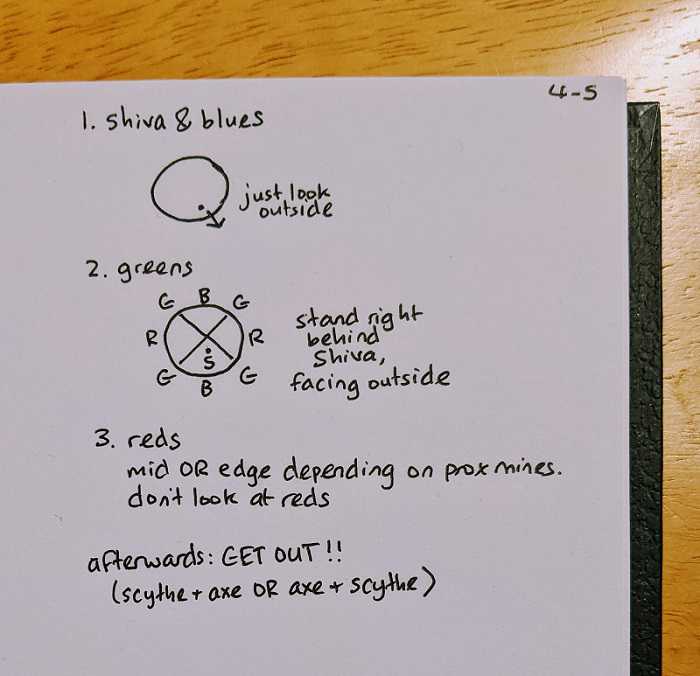 4-5
1. shiva & blues
just look
outside
2. greens
G B G
R R
S
G B G
stand right
behind
Shiva,
facing outside
3. reds
mid OR edge depending on prox mines.
don't look at reds
afterwards: GET OUT!!
(scythe + axe OR axe + scythe)